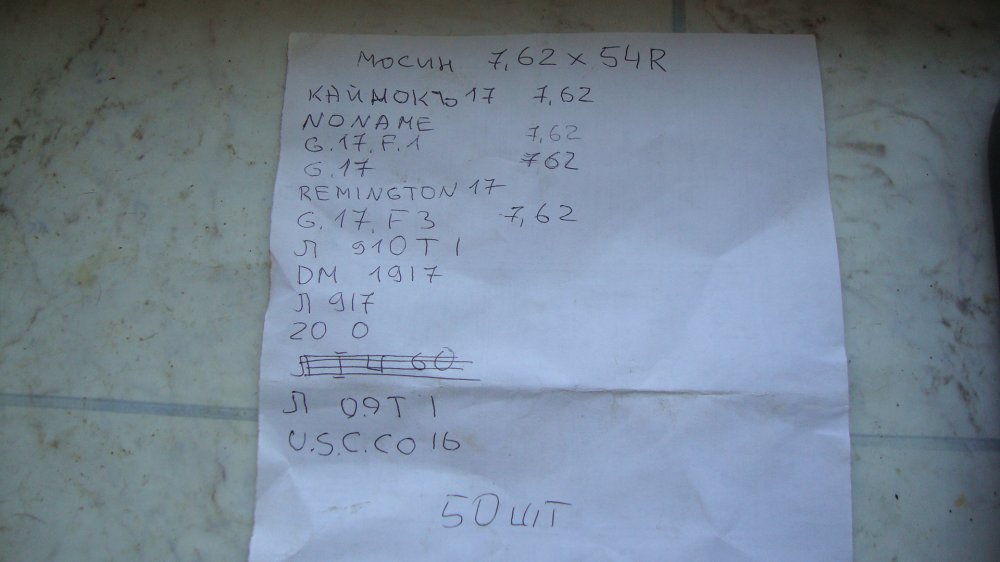 МОСИН 7,62 × 54R
КАЙМОКЪ 17 7,62
NONAME
G.17.F.1 7,62
G.17 762
REMINGTON 17
G.17.F3 7,62
Л 910Т I
DM 1917
Л 917
20 0
Л I Ц 60
Л 09Т I
U.S.C.CO 16
50 ШТ